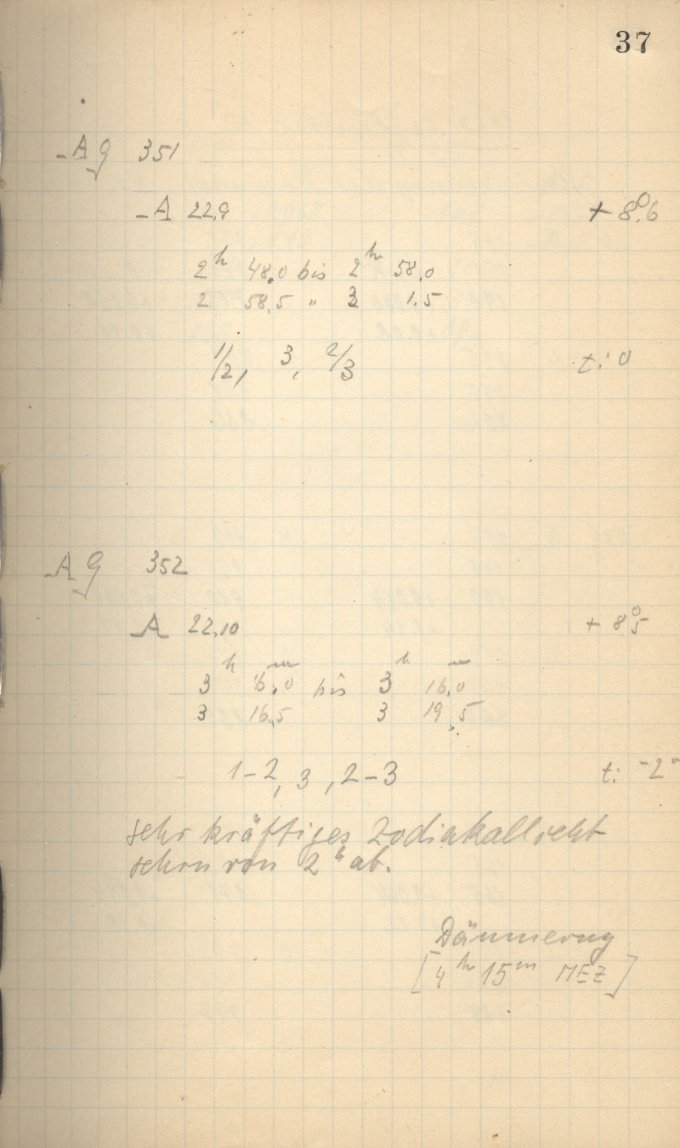 37
-A g 351
-A 22,9 + 8°.6
2h 48,0 bis 2h 58,0
2 58,5 " 3 1.5
1/2, 3, 2/3 t: 0
A g 352
A 22,10 + 8°5
3h 6,m0 bis 3h 16,m0
3 16,5 3 19,5
1-2, 3, 2-3 t: -2
sehr kräftiges Zodiakallicht
schon von 2h ab.
Dämmerung
[4h 15m MEZ]